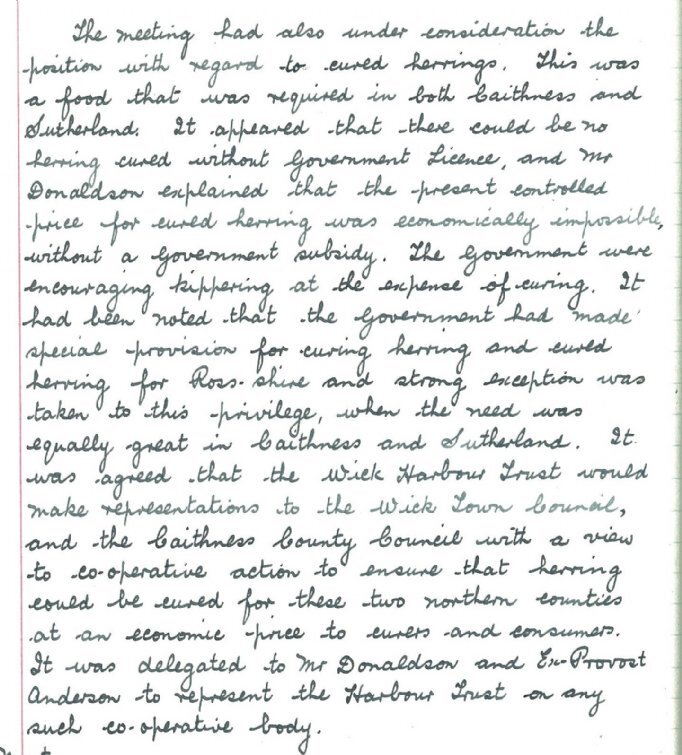 The meeting had also under consideration the
position with regard to cured herrings. This was
a food that was required in both Caithness and
Sutherland. It appeared that there could be no
herring cured without Government Licence, and Mr
Donaldson explained that the present controlled
price for cured herring was economically impossible,
without a Government subsidy. The Government were
encouraging kippering at the expense of curing. It
had been noted that the Government had made
special provision for curing herring and cured
herring for Ross-shire and strong exception was
taken to this privilege, when the need was
equally great in Caithness and Sutherland. It
was agreed that the Wick Harbour Trust would
make representations to the Wick Town Council,
and the Caithness County Council with a view
to co-operative action to ensure that herring
could be cured for these two northern counties
at an economic price to curers and consumers.
It was delegated to Mr Donaldson and Ex-Provost
Anderson to represent the Harbour Trust on any
such co-operative body.